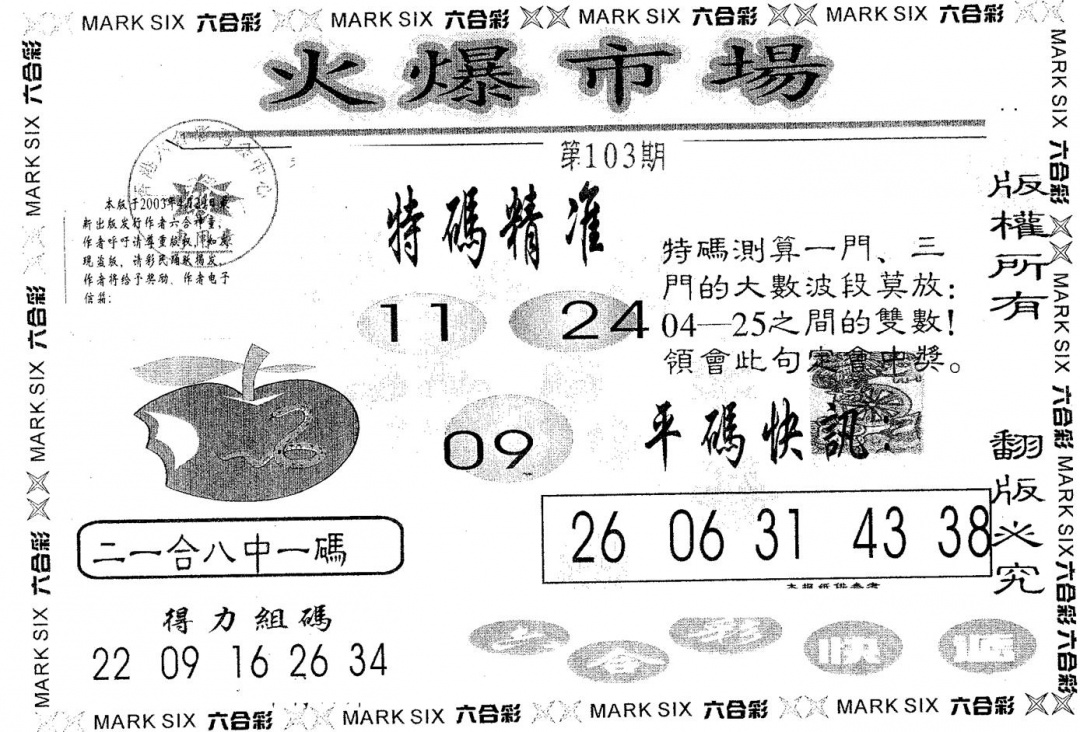 MARK SIX 六合彩 MARK SIX 六合彩 MARK SIX 六合彩 MARK SIX 六合彩
火爆市場
第103期
本版于2003年
新出版发行作者六合神童,
作者呼吁请尊重版权,如发
现盗版,请彩民踊跃揭发
作者将给予奖励.作者电子
信箱:
特碼精准
11 24
09
特碼測算一門、三
門的大數波段莫放:
04—25之間的雙數!
領會此句定會中獎。
平碼快訊:
26 06 31 43 38
本报纸供参考
二一合八中一碼
得力組碼
22 09 16 26 34
六合彩快遞
版權所有
翻版必究
MARK SIX 六合彩 MARK SIX 六合彩 MARK SIX 六合彩
MARK SIX 六合彩 MARK SIX 六合彩 MARK SIX 六合彩 六合彩
MARK SIX 六合彩 MARK SIX 六合彩 MARK SIX 六合彩 MARK SIX 六合彩